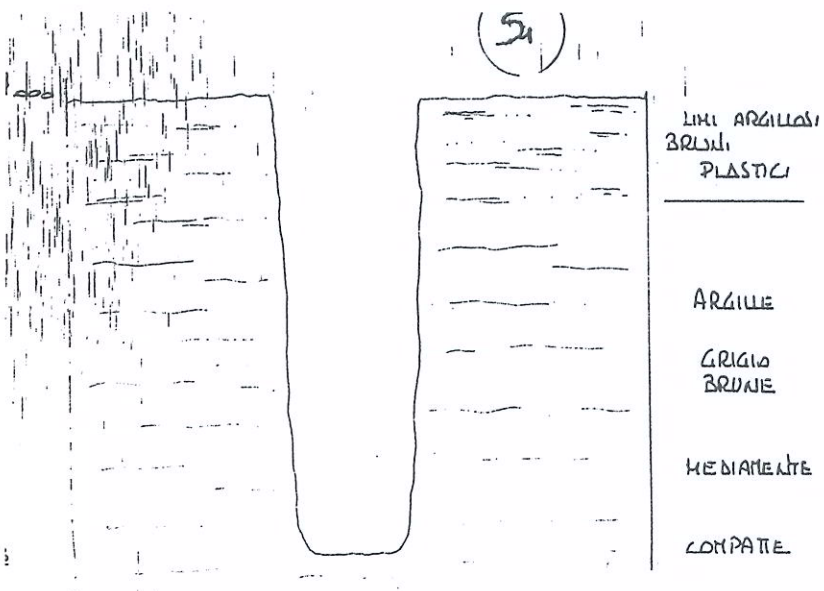 S4
0.00
LIMI ARGILLOSI
BRUNI
PLASTICI
ARGILLE
GRIGIO
BRUNE
MEDIAMENTE
COMPATTE